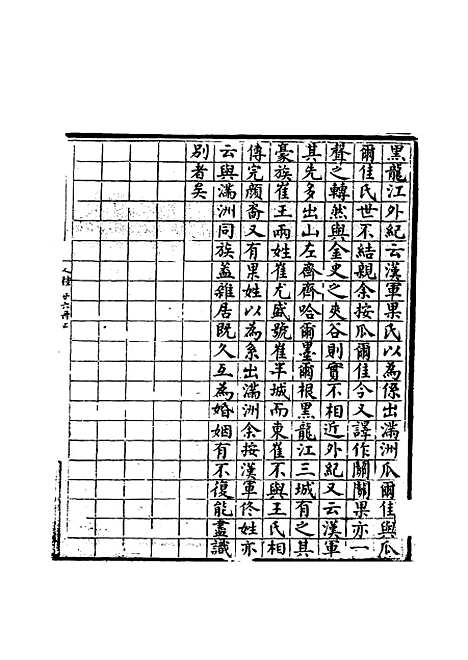 黑龍江外紀云漢軍果氏以為係出滿洲瓜爾佳與瓜
爾佳氏世不結親余按瓜爾佳今又譯作關關果亦一
聲之轉然與金史之夾谷則實不相近外紀又云漢軍
其先多出山左齊齊哈爾墨爾根黑龍江三城有之其
豪族崔王兩姓崔尤盛號崔半城而東崔不與王氏相
傳完顏裔又有果姓以為系出滿洲余按漢軍佟姓亦
云與滿洲同族蓋雜居既久互為婚姻有不復能盡識
別者矣